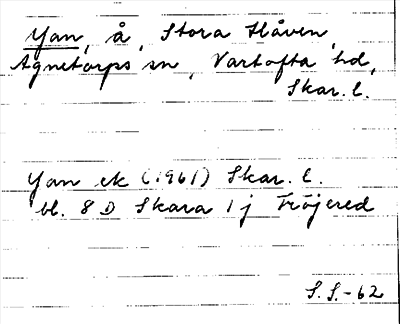 Yan, å, Stora Slåven,
Agnetorps sn, Vartofta hd,
Skar. l.
Yan ek (1961) Skar. l.
bl. 8 D Skara 1 j Fröjered
S. S. -62